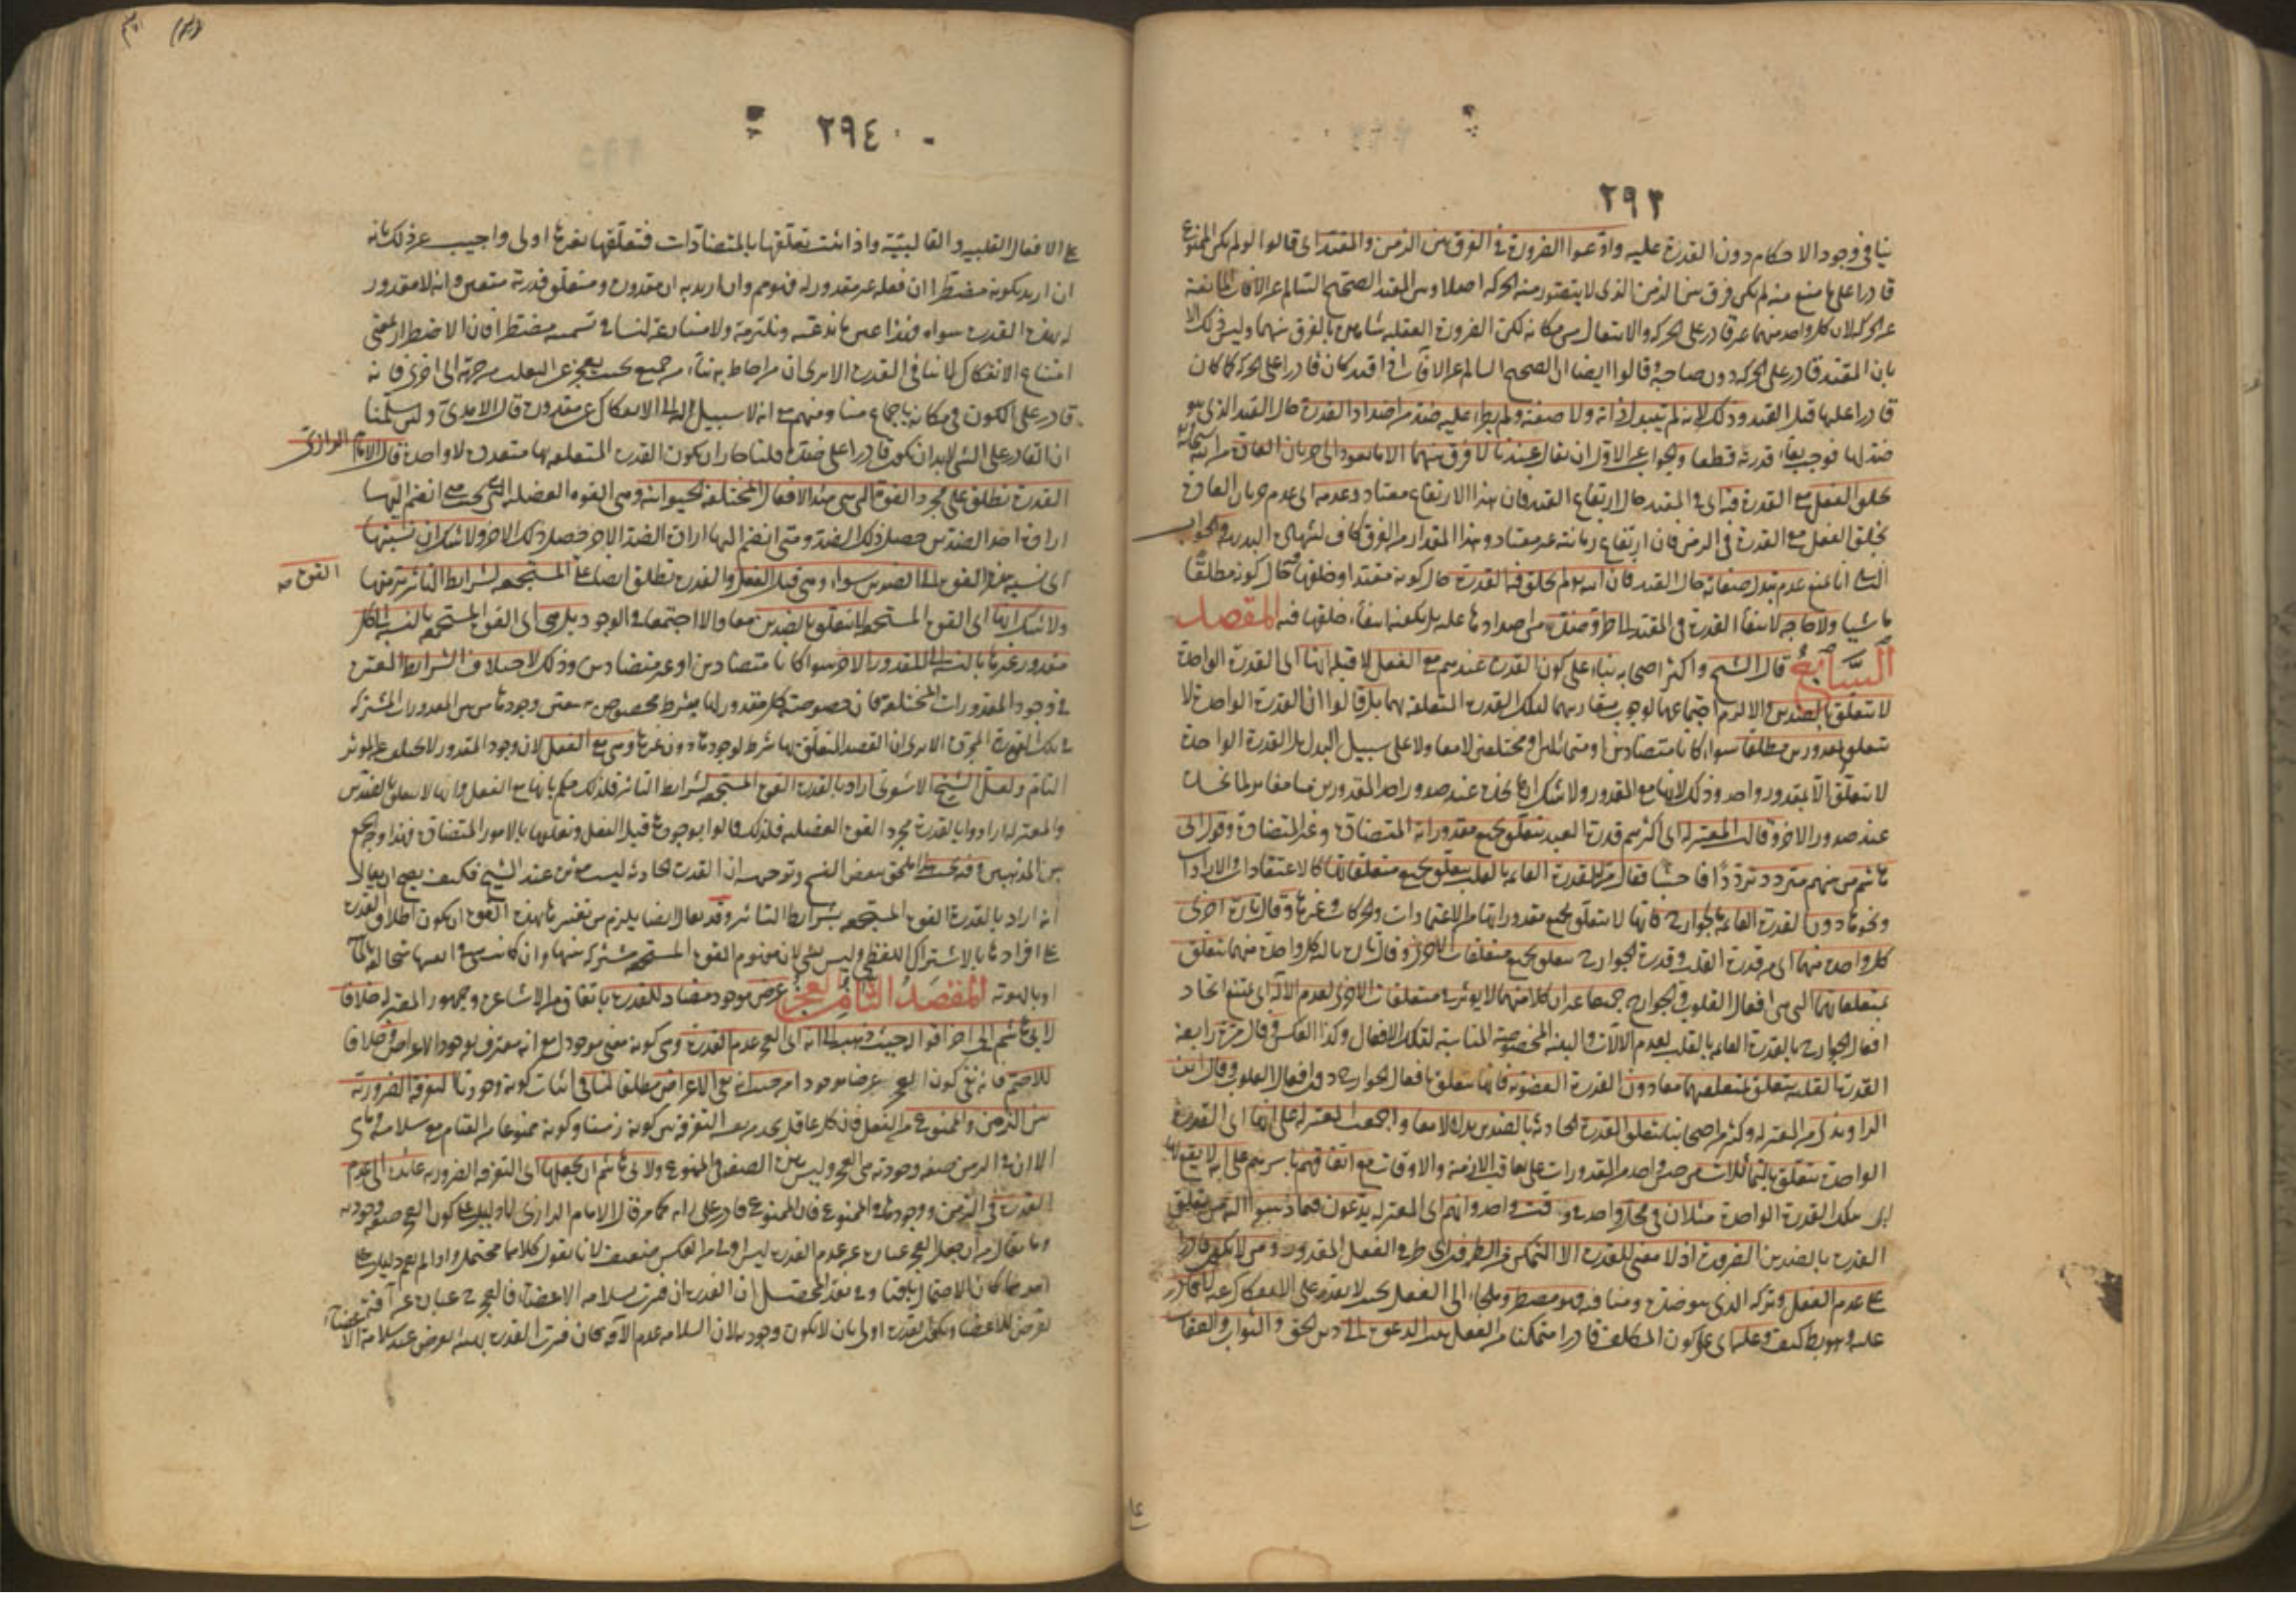 ٢٩٣
ينافي وجود الاحكام دون القدرة عليه وادعوا الضرورة في الفرق بين الزمن والمقيد اى قالوا لو لم يكن الممنوع
قادرا على ما منع منه لم يكن فرق بين الزمن الذى لا يتصور منه الحركة اصلا وبين المقيد الصحيح السالم عن الآفات المانعة
عن الحركة لان كل واحد منهما غير قادر على الحركة والانتقال من مكانه لكن الضرورة العقلية شاهدة بالفرق بينهما وليس ذلك الا
بان المقيد قادر على الحركة دون صاحبه وقالوا ايضا ان الصحيح السالم عن الآفات اذا قيد كان قادرا على الحركة كما كان
قادرا عليها قبل القيد وذلك لانه لم يتبدل ذاته ولا صفته ولم يطرء عليه ضد من اضداد القدرة حال القيد الذى هو
ضد لها فوجب بقاء قدرته قطعا والجواب عن الاول ان يقال عندنا لا فرق بينهما الا ما يعود الى جريان العادة من الله سبحانه
بخلق الفعل مع القدرة فيه اى في المقيد حال ارتفاع القيد فان هذا الارتفاع معتاد وعدمه اى عدم جريان العادة
بخلق الفعل مع القدرة في الزمن فان ارتفاع زمانته غير معتاد وهذا المقدار من الفرق كاف لشهادة البديهة والجواب
عن الثانى انا نمنع عدم تبدل صفاته حال القيد فان الله لم يخلق فيه القدرة حال كونه مقيدا وخلقها فيه حال كونه مطلقا
ماشيا ولا حاجة لانتفاء القدرة في المقيد الى طرو ضد من اضدادها عليه بل يكفيه انتفاء خلقها فيه المقصد
السابع قال الشيخ واكثر اصحابه بناء على كون القدرة عندهم مع الفعل لا قبله انها اى القدرة الواحدة
لا تتعلق بالضدين والا لزم اجتماعهما لوجوب مقارنتهما لتلك القدرة المتعلقة بهما بل قالوا ان القدرة الواحدة لا
تتعلق بمقدورين مطلقا سواء كانا متضادين او متماثلين او مختلفين لا معا ولا على سبيل البدل بل القدرة الواحدة
لا تتعلق الا بمقدور واحد وذلك لانها مع المقدور ولا شك ان ما نجده عند صدور احد المقدورين منا مغاير لما نجده
عند صدور الاخر وقالت المعتزلة اى اكثرهم قدرة العبد تتعلق بجميع مقدوراته المتضادة وغير المتضادة وقول ابى
هاشم من بينهم متردد ترددا فاحشا فقال مرة القدرة القائمة بالقلب تتعلق بجميع متعلقاتها كالاعتقادات والارادات
ونحوها دون القدرة القائمة بالجوارح فانها لا تتعلق بجميع مقدوراتها من الاعتمادات والحركات وغيرها وقال تارة اخرى
كل واحدة منهما اى من قدرة القلب وقدرة الجوارح تتعلق بجميع متعلقات الاخرى وقال تارة ثالثة كل واحدة منهما تتعلق
بمتعلقاتهما التى هى افعال القلوب والجوارح جميعا غير ان كلا منهما لا يؤثر في متعلقات الاخرى لعدم الآلة اى يمتنع ايجاد
افعال الجوارح بالقدرة القائمة بالقلب لعدم الآلات والبنية المخصوصة المناسبة لتلك الافعال وكذا العكس وقال مرة رابعة
القدرة القلبية تتعلق بمتعلقهما معا دون القدرة العضوية فانها تتعلق بافعال الجوارح دون افعال القلوب وقال ابن
الراوندى من المعتزلة وكثير من اصحابنا تتعلق القدرة الحادثة بالضدين بدلا لا معا واجمعت المعتزلة على انها اى القدرة
الواحدة تتعلق بالمتماثلات من جنس واحد من المقدورات على تعاقب الازمنة والاوقات مع اتفاقهم باسرهم على انه لا يقع بها
اى بتلك القدرة الواحدة مثلان في محل واحد في وقت واحد وانهم اى المعتزلة يدعون فيما ذهبوا اليه من تعلق
القدرة بالضدين الضرورة اذ لا معنى للقدرة الا التمكن من الطرفين اى طرفى الفعل المقدور ومن لا يكون قادرا
على عدم الفعل وتركه الذى هو ضده ومنافيه فهو مضطر وملجاء الى الفعل بحيث لا يقدر على الانفكاك عنه لا قادر
عليه وهو يبطل تكليفه وعليها اى على كون المكلف قادرا متمكنا من الفعل بناء الدعوة الى دين الحق والثواب والعقاب
٢٩٤
على الافعال القلبية والقالبية واذا ثبت تعلقها بالمتضادات فتعلقها بغيرها اولى واجيب عن ذلك بانه
ان اريد بكونه مضطرا ان فعله غير مقدور له فهو مم وان اريد به ان مقدوره ومتعلق قدرته متعين وانه لا مقدور
له بهذه القدرة سواه فهذا عين ما ندعيه ونلتزمه ولا منازعة لنا في تسميته مضطرا فان الاضطرار بمعنى
امتناع الانفكاك لا ينافي القدرة الا يرى ان من احاط به بناء من جميع بحيث يعجز عن التقلب من جهة الى اخرى فانه
قادر على الكون في مكانه باجماع منا ومنهم مع انه لا سبيل له الى الانفكاك عن مقدوره قال الآمدى ولئن سلمنا
ان القادر على الشئ لابد ان يكون قادرا على ضده قلنا جاز ان يكون القدرة المتعلقة بهما متعددة لا واحدة قال الامام الرازى
القدرة تطلق على مجرد القوة التى هى مبدأ الافعال المختلفة الحيوانية وهى القوة العضلية التى بحيث متى انضم اليها
ارادة احد الضدين حصل ذلك الضد ومتى انضم اليها ارادة الضد الاخر حصل ذلك الاخر ولا شك ان نسبتها
اى نسبة هذه القوة الى الضدين سواء وهى قبل الفعل والقدرة تطلق ايضا على المستجمعة لشرايط التأثير برمتها
القوة صح
ولا شك انها اى القوة المستجمعة لا تتعلق بالضدين معا والا اجتمعا في الوجود بل هى اى القوة المستجمعة بالنسبة الى كل
مقدور غيرها بالنسبة الى المقدور الاخر سواء كانا متضادين او غير متضادين وذلك لاختلاف الشرايط المعتبرة
في وجود المقدورات المختلفة فان خصوصية كل مقدور لها شرط مخصوص به يتعين وجودها من بين المقدورات المشتركة
في تلك القوة المجردة الا يرى ان القصد المتعلق بها شرط لوجودها دون غيرها وهى مع الفعل لان وجود المقدور لا يتخلف عن المؤثر
التام ولعل الشيخ الاشعرى اراد بالقدرة القوة المستجمعة لشرايط التأثير فلذلك حكم بانها مع الفعل وانها لا تتعلق بالضدين
والمعتزلة ارادوا بالقدرة مجرد القوة العضلية فلذلك قالوا بوجودها قبل الفعل وتعلقها بالامور المتضادة فهذا وجه الجمع
بين المذهبين وفيه بحث ان القدرة الحادثة ليست مؤثرة عند الشيخ فكيف يصح ان يقال
انه اراد بالقدرة القوة المستجمعة بشرايط التأثير وقد يقال ايضا يلزم من تفسيرها بهذه القوة ان يكون اطلاق القدرة
على افرادها بالاشتراك اللفظى وليس بشئ لان مفهوم القوة المستجمعة مشتركة بينها
المقصد الثامن العجز عرض موجود مضاد للقدرة باتفاق من الاشاعرة وجمهور المعتزلة خلافا
لابى هاشم في آخر اقواله حيث ذهب الى انه اى العجز عدم القدرة مع انه معترف بوجود الاعراض وخلافا
للاصم فانه نفى كون العجز عرضا موجودا من حيث انه نفى الاعراض مطلقا لنا في اثبات كونه وجوديا التفرقة الضرورية
بين الزمن والممنوع من الفعل فان كل عاقل يجد من نفسه التفرقة بين كونه زمنا وكونه ممنوعا من القيام مع سلامته وما هى
الا ان في الزمن صفة وجودية هى العجز وليس هذه الصفة في الممنوع ولابى هاشم ان يجعلها اى التفرقة الضرورية عائدة الى عدم
القدرة في الزمن ووجودها في الممنوع فان الممنوع قادر على رايه كما مر قال الامام الرازى لا دليل على كون العجز صفة وجودية
وما يقال من ان جعل العجز عبارة عن عدم القدرة ليس اولى من العكس ضعيف لانا نقول كلاهما محتمل واذا لم يقم دليل على
احدهما كان الاحتمال باقيا وفي نقد المحصل ان القدرة ان فسرت بسلامة الاعضاء فالعجز ح عبارة عن آفة
تعرض للاعضاء ويكون القدرة اولى بان لا يكون وجودية لان السلامة عدم الآفة وان فسرت القدرة بهيئة تعرض عند سلامة الاعضاء